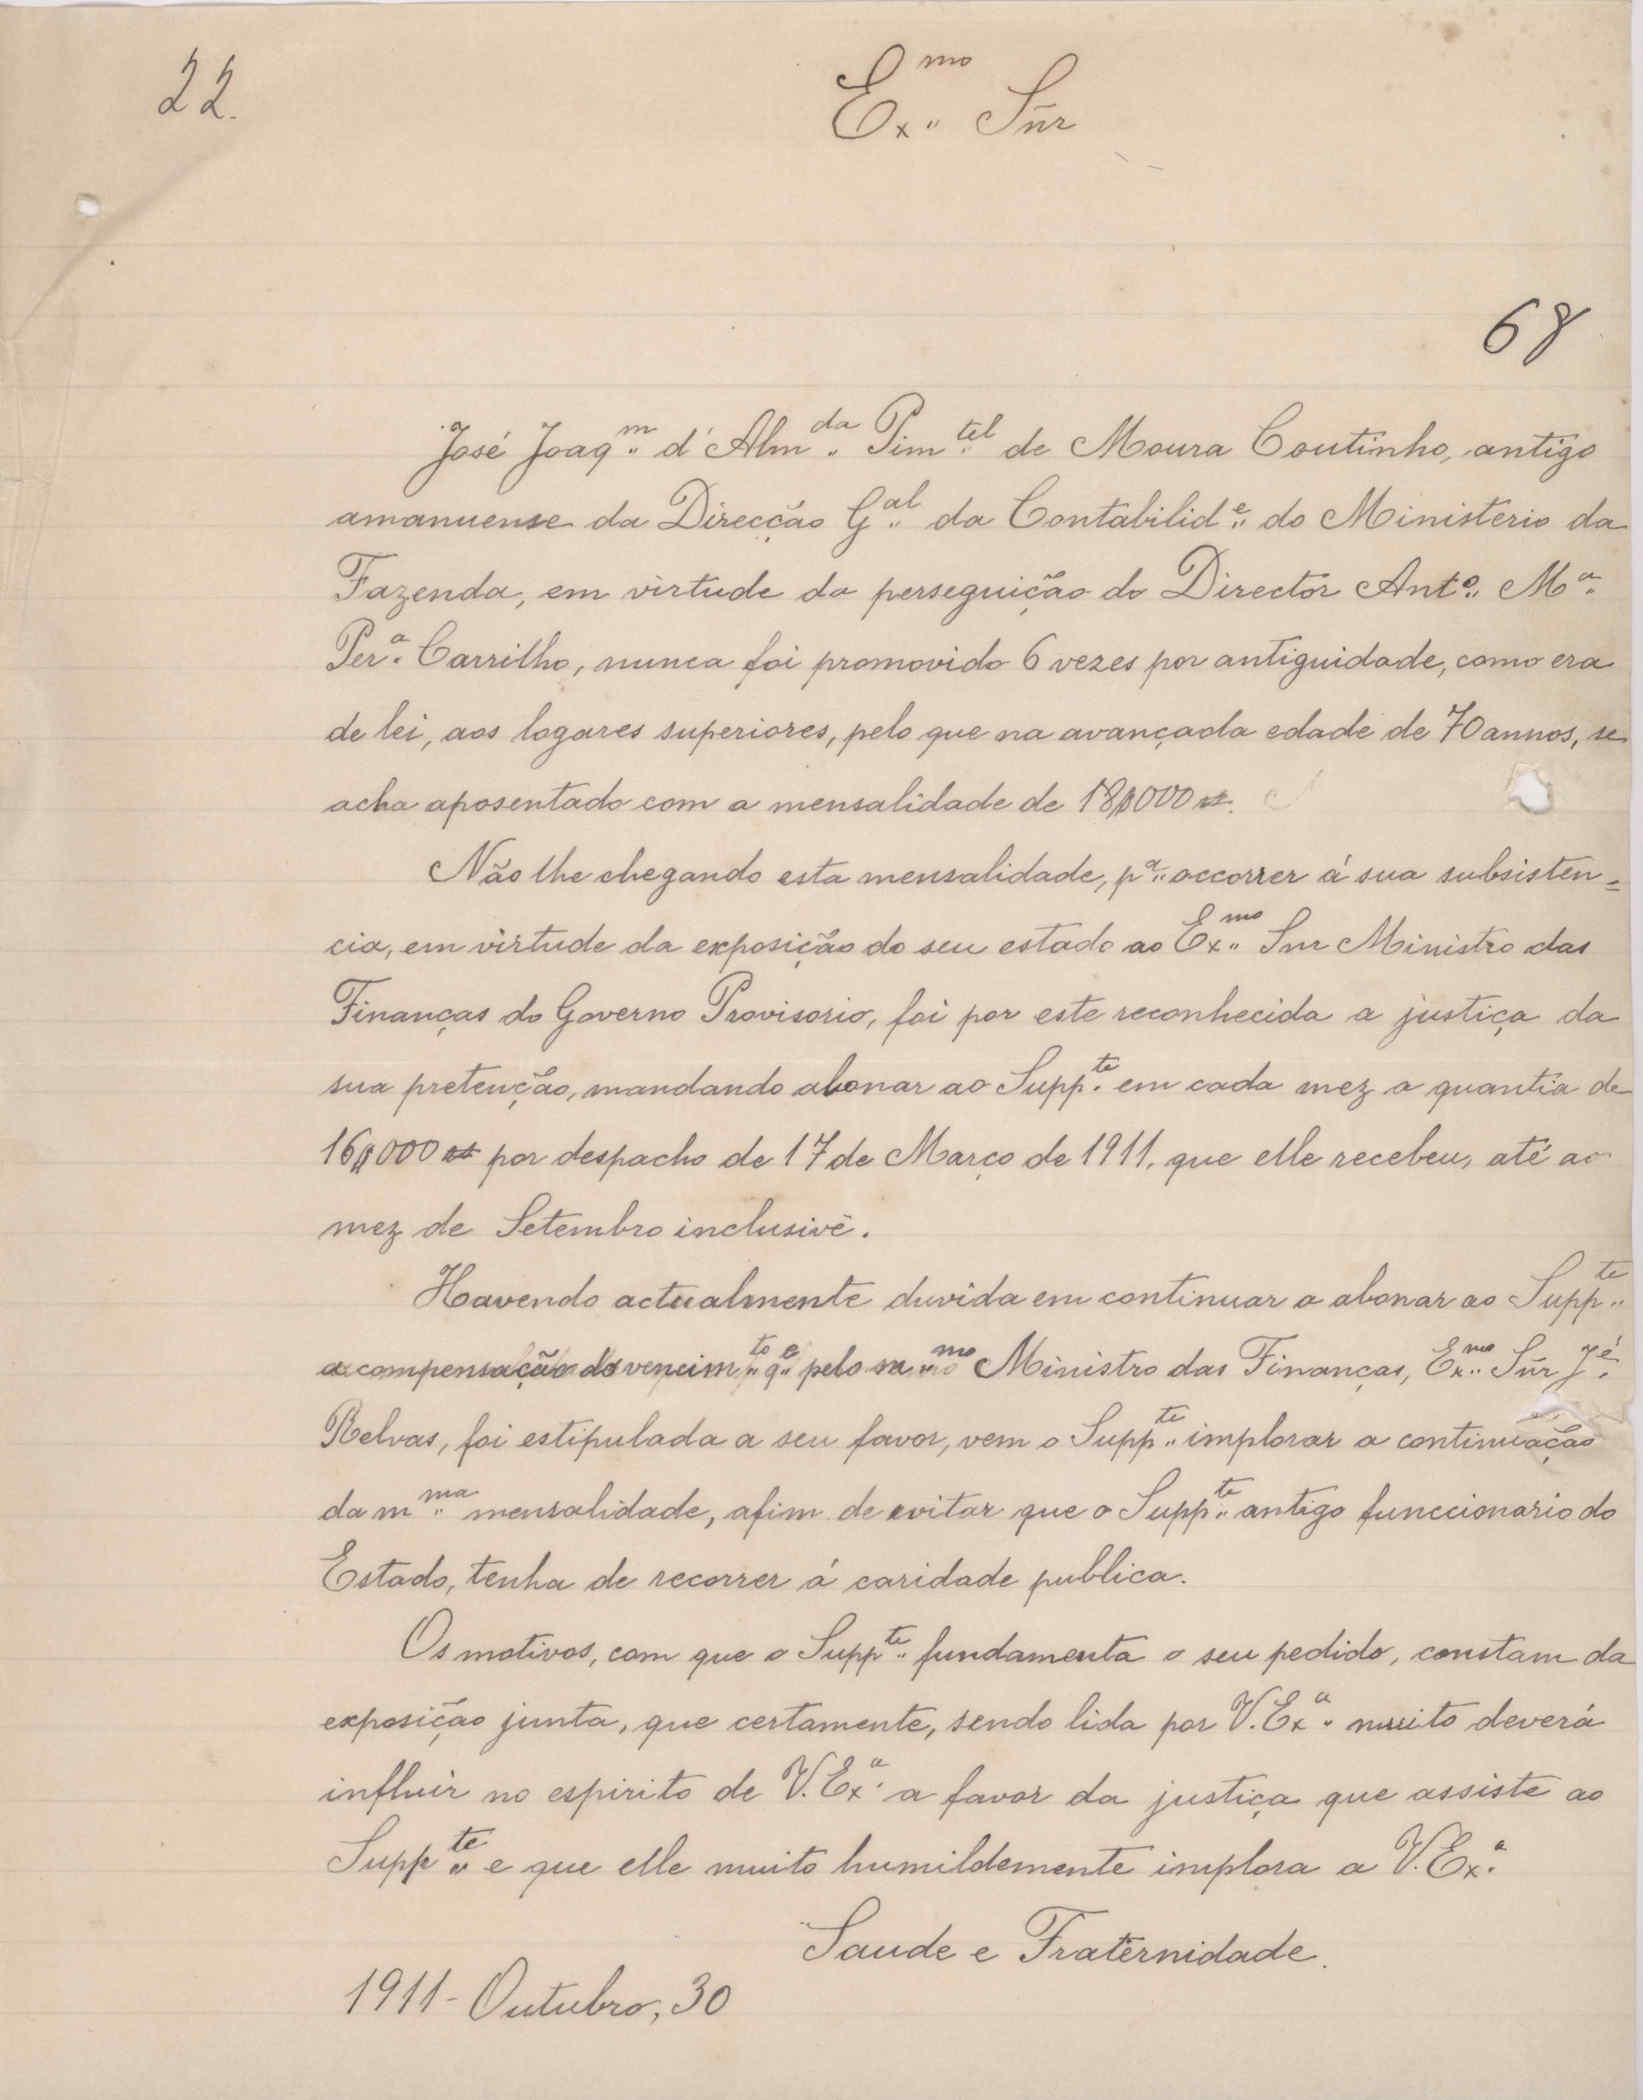 22.
Ex.mo Sñr
68
José Joaq.m d'Alm.da Pim.tel de Moura Coutinho, antigo
amanuense da Direcção G.al da Contabilid.e do Ministerio da
Fazenda, em virtude da perseguição do Director Ant.o M.a
Per.a Carrilho, nunca foi promovido 6 vezes por antiguidade, como era
de lei, aos logares superiores, pelo que na avançada edade de 70 annos, se
acha aposentado com a mensalidade de 18$000 rs.
Não lhe chegando esta mensalidade, p.a occorrer á sua subsisten=
cia, em virtude da exposição do seu estado ao Ex.mo Snr Ministro das
Finanças do Governo Provisorio, foi por este reconhecida a justiça da
sua pretenção, mandando abonar ao Supp.te em cada mez a quantia de
16$000 rs por despacho de 17 de Março de 1911, que elle recebeu, até ao
mez de Setembro inclusivè.
Havendo actualmente duvida em continuar a abonar ao Supp.te
a compensação do vencim.to q.e pelo m.mo Ministro das Finanças, Ex.mo Sñr J.é
Relvas, foi estipulada a seu favor, vem o Supp.te implorar a continuação
da m.ma mensalidade, afim de evitar que o Supp.te antigo funccionario do
Estado, tenha de recorrer á caridade publica.
Os motivos, com que o Supp.te fundamenta o seu pedido, constam da
exposição junta, que certamente, sendo lida por V. Ex.a muito deverá
influir no espirito de V. Ex.a a favor da justiça que assiste ao
Supp.te e que elle muito humildemente implora a V. Ex.a
Saude e Fraternidade.
1911 - Outubro, 30